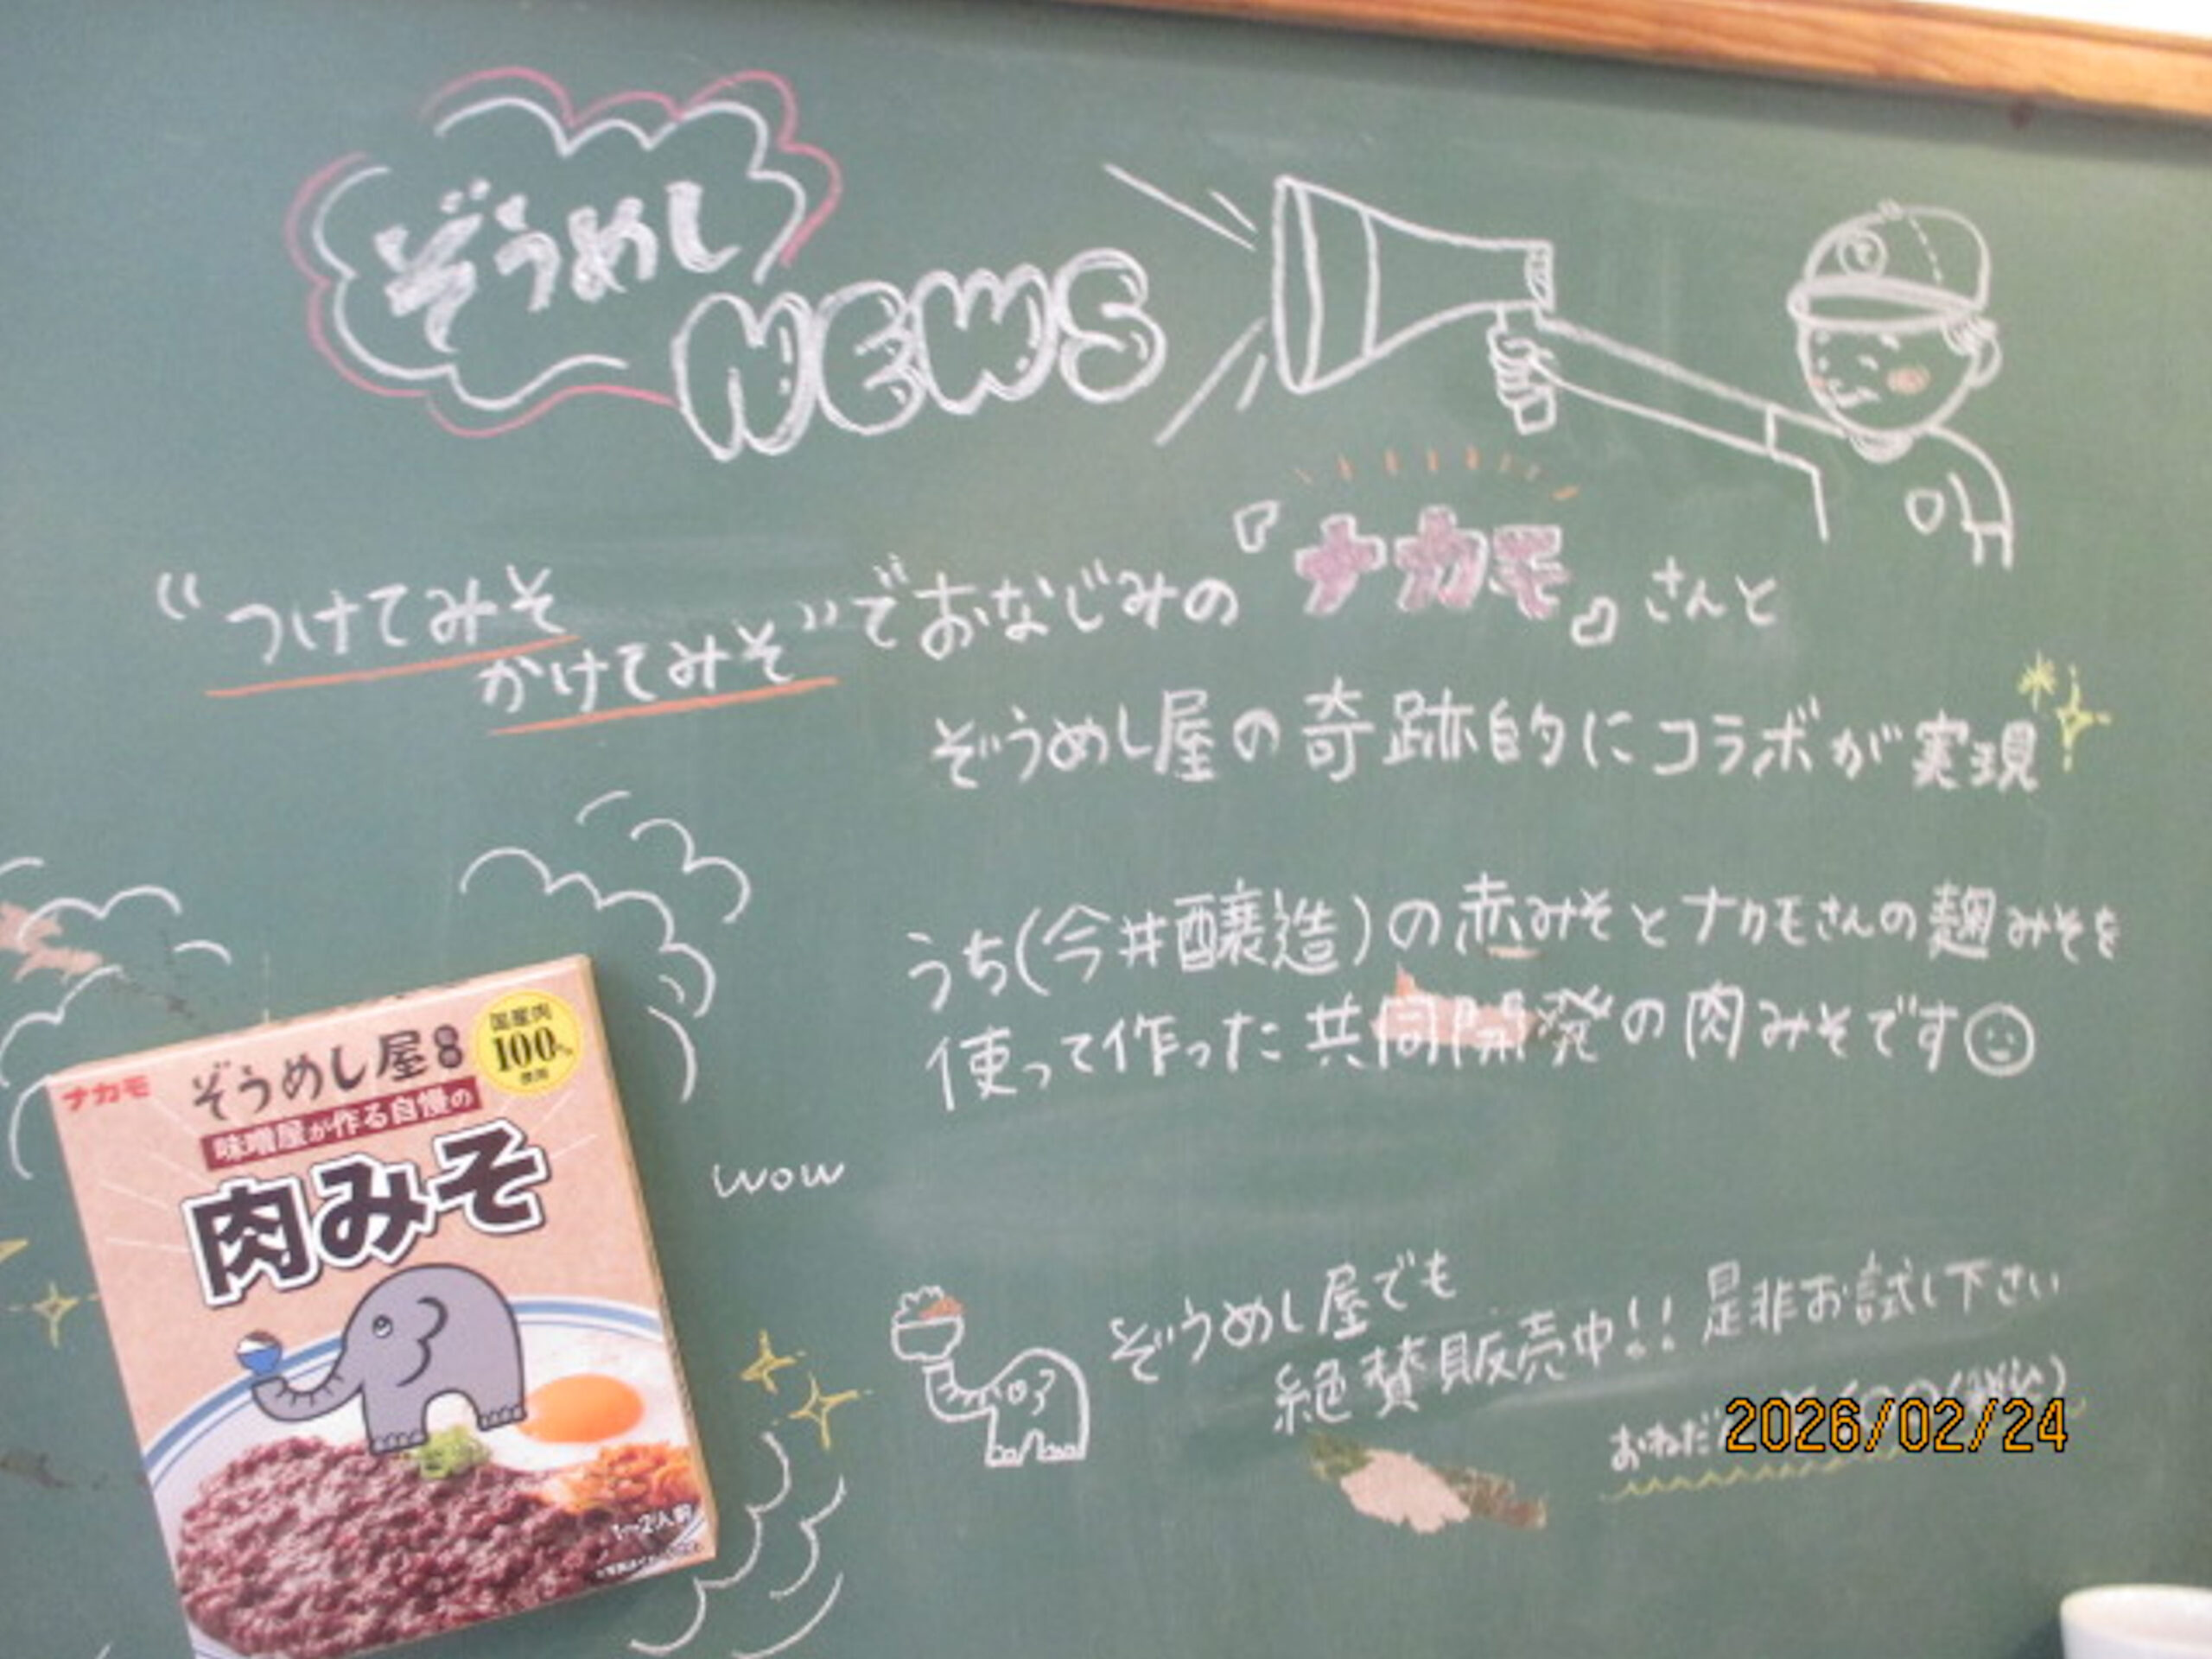 ぞうめし
NEWS
“つけてみそ
かけてみそ”でおなじみの『ナカモ』さんと
ぞうめし屋の奇跡的にコラボが実現
うち(今井醸造)の赤みそとナカモさんの麹みそを
使って作った共同開発の肉みそです
ナカモ
ぞうめし屋監修
国産肉
100%
使用
味噌屋が作る自慢の
肉みそ
1〜2人前
wow
ぞうめし屋でも
絶賛販売中!! 是非お試し下さい
おねだ
2026/02/24